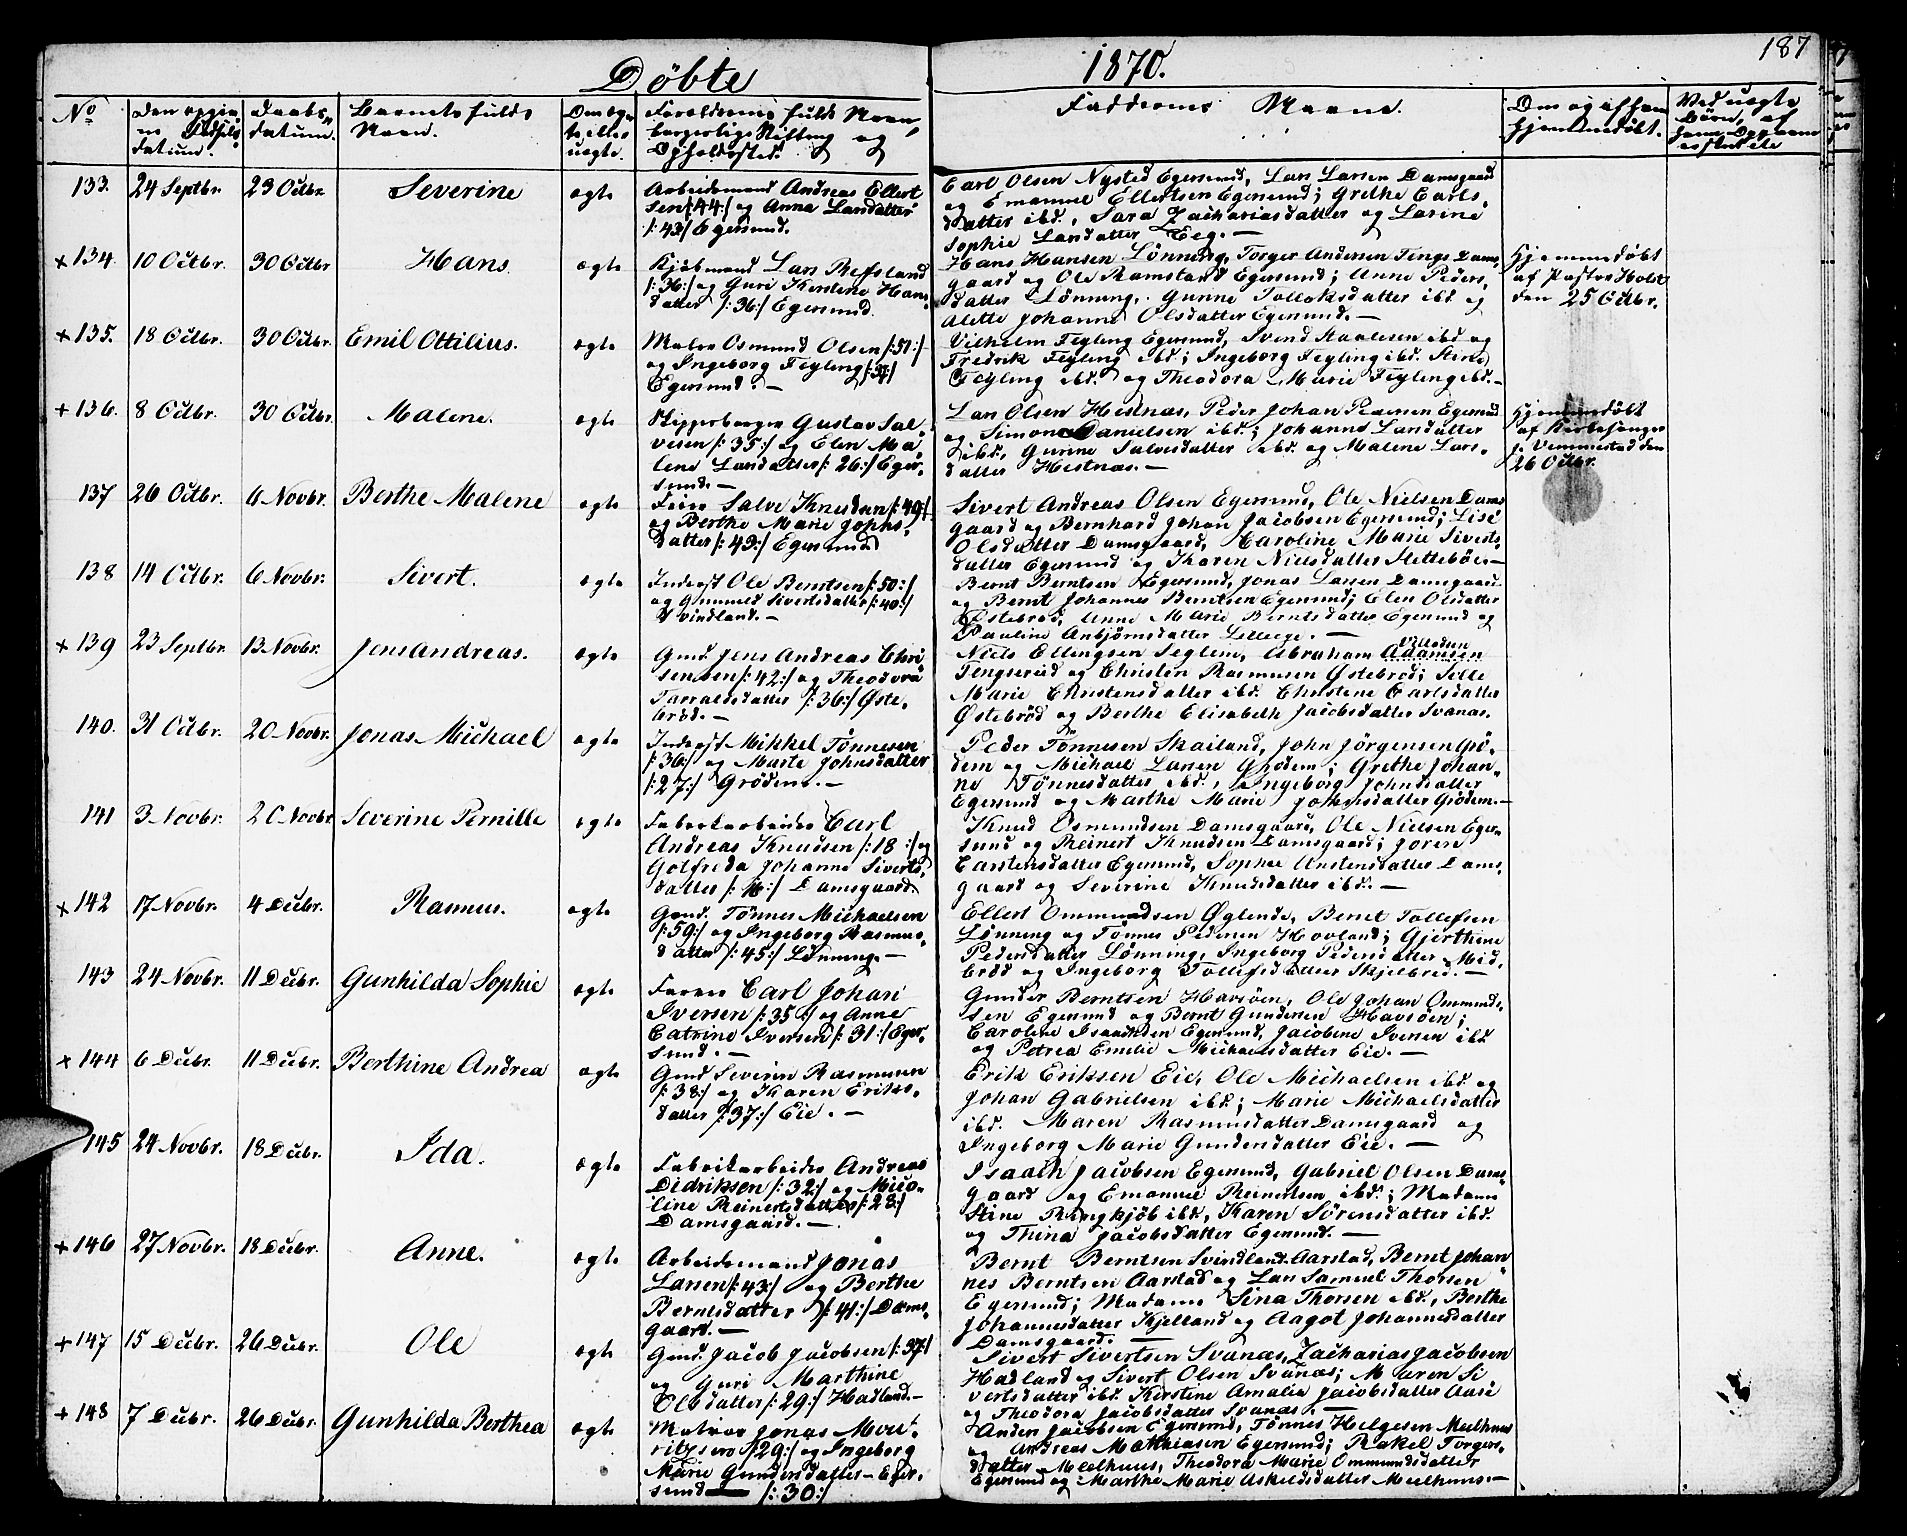 187
Döbte 1870.
No | Den opgivne Fødselsdatum. | Daabsdatum. | Barnets fulde Navn. | Om ægte eller uægte. | Forældrenes fulde Navn, borgerlige Stilling og Opholdssted. | Faddernes Navne. | Om og af hvem hjemmedøbt. | Ved uægte Børn, af
133. 24 Septbr. 23 Octbr. Severine ægte
Arbeidsmand Andreas Ellert
sen /:44:/ og Anna Larsdatter
/:43:/ Egersund.
Carl Olsen Nysted Egersund, Lars Larsen Damsgaard
og Emanuel Ellertsen Egersund; Grethe Carls-
datter ibd., Sara Zachariasdatter og Larine
Sophie Larsdatter Eeg. —
+ 134. 10 Octbr. 30 Octbr Hans. ægte
Kjøbmand Lars Refsland
/:36:/ og Guri Kirstine Hans-
datter /:36:/ Egersund.
Hans Hansen Lönning, Torger Andersen Tings Dams-
gaard og Ole Ramstad Egersund; Anne Peders-
datter Lönning, Gunne Tolloksdatter ibd. og
Alette Johanne Olsdatter Egersund. —
Hjemmedøbt
af Pastor Holst
den 25 Octbr.
+ 135. 18 Octbr. 30 Octbr. Emil Ottilius. ægte
Maler Osmund Olsen /:51:/
og Ingeborg Feyling /:37:/
Egersund. —
Vilhelm Feyling Egersund, Svend Staalesen ibd og
Fredrik Feyling ibd.; Ingeborg Feyling ibd. Stine
Feyling ibd. og Theodora Marie Feyling ibd. —
+ 136. 8 Octbr. 30 Octbr. Malene. ægte
Skipperborger Gustav Sal-
vesen /:35:/ og Elen Ma-
lene Larsdatter /:26:/ Eger-
sund. —
Lars Olsen Hestnæs, Peder Johan Pedersen Egersund
og Simon Danielsen ibd.; Johanne Larsdatter
ibd., Gurine Salvesdatter ibd. og Malene Lars-
datter Hestnæs. —
Hjemmedøbt
af Kirkesanger
J. Vemmestad den
26 Octbr.
137 26 Octbr. 6 Novbr. Berthe Malene ægte
Feier Salve Knudsen /:49:/
og Berthe Marie Johns-
datter /:43:/ Egersund
Sivert Andreas Olsen Egersund, Ole Nielsen Dams-
gaard og Bernhard Johan Jacobsen Egersund; Lisé
Olsdatter Damsgaard, Caroline Marie Siverts-
datter Egersund og Karen Nielsdatter Slettebøe. —
138 14 Octbr. 6 Novbr. Sivert. ægte
Inderst Ole Berntsen /:50:/
og Gunnild Sivertsdatter /:40:/
Svindland. —
Bernt Berntsen Egersund, Jonas Larsen Damsgaard
og Bernt Johannes Berntsen Egersund; Elen Olsdatter
Østebrød, Anne Marie Berntsdatter Egersund og
Pauline Anbjørnsdatter
+ 139 23 Septbr. 13 Novbr. Jens Andreas. ægte
Gmd. Jens Andreas Chri-
stensen /:42:/ og Theodora
Tarraldsdatter /:36:/ Øste-
brød. —
Niels Ellingsen Seglem, Abraham Adamsen
Tengsereid og Christen Rasmusen Østebrød; Sille
Marie Christensdatter ibd. Christene Carlsdatter
Østebrød og Berthe Elisabeth Jacobsdatter Svanæs.
140. 31 Octbr. 20 Novbr. Jonas Michael ægte
Inderst Mikkel Tönnesen
/:36:/ og Marte Johnsdatter
/:27:/ Gröden. —
Peder Tönnesen Skailand, John Jörgensen Grö-
dem og Michael Larsen Grödem; Grethe Johan-
ne Tönnesdatter ibd., Ingeborg Johnsdatter
Egersund og Marthe Marie Johnsdatter Grödem. —
141 3 Novbr. 20 Novbr Severine Pernille ægte
Fabrikarbeider Carl
Andreas Knudsen /:18:/ og
Gotfreda Johanne Siverts-
datter /:16:/ Damsgaard.
Knud Osmundsen Damsgaard, Ole Nielsen Eger-
sund og Reinert Knudsen Damsgaard; Joren
Carstensdatter Egersund, Sophie Austensdatter Dams-
gaard og Severine Knudsdatter ibd. —
+ 142 17 Novbr. 4 Decbr. Rasmus. ægte
Gmd. Tönnes Michaelsen
/:59:/ og Ingeborg Rasmus-
datter /:45:/ Lönning. —
Ellert Ommundsen Øglende, Bernt Tollefsen
Lönning og Tönnes Pedersen Hovland; Gjerthine
Pedersdatter Lönning, Ingeborg Pedersdatter Mid-
brød og Ingeborg Tollefsdatter Skjelbred. —
143 24 Novbr. 11 Decbr. Gunhilda Sophie ægte
Farver Carl Johan
Iversen /:35:/ og Anne
Catrine Iversen /:31:/ Eger-
sund. —
Gunder Berntsen Havsöen, Ole Johan Ommund-
sen Egersund og Bernt Gundersen Havsöen;
Caroline Isaachsen Egersund, Jacobine Iversen ibd.
og Petrea Emilie Michaelsdatter Eie. —
+ 144 6 Decbr. 11 Decbr. Berthine Andrea ægte
Gmd Severin Rasmusen
/:38:/ og Karen Eriks-
datter /:37:/ Eie. —
Erik Eriksen Eie, Ole Michaelsen ibd. og
Johan Gabrielsen ibd.; Marie Michaelsdatter
ibd. Maren Rasmusdatter Damsgaard og
Ingeborg Marie Gundersdatter Eie. —
145 24 Novbr. 18 Decbr. Ida. ægte
Fabrikarbeider Andreas
Didriksen /:32:/ og Nico-
line Reinertsdatter /:28:/
Damsgaard. —
Isaach Jacobsen Egersund, Gabriel Olsen Dams-
gaard og Emanuel Reinertsen ibd.; Madame
Stine Ringkjöb ibd., Karen Sörensdatter ibd.
og Thina Jacobsdatter Egersund. —
+ 146 27 Novbr. 18 Decbr. Anne. ægte
Arbeidsmand Jonas
Larsen /:43:/ og Berthe
Berntsdatter /:41:/ Dams-
gaard. —
Bernt Berntsen Svindland. Aarstad, Bernt Johan-
nes Berntsen Aarstad og Lars Samuel Thorsen
Egersund; Madame Sina Thorsen ibd., Berthe
Johannesdatter Kjelland og Aagot Johannesdatter
Damsgaard. —
+ 147 15 Decbr. 26 Decbr. Ole ægte
Gmd. Jacob Jacobsen /:37:/
og Guri Marthine
Olsdatter /:29:/ Hadland. —
Sivert Sivertsen Svanæs, Zacharias Jacobsen
Hadland og Sivert Olsen Svanæs; Maren Si-
vertsdatter ibd. Kirstine Amalia Jacobsdatter Aase
og Theodora Jacobsdatter Svanæs. —
+ 148 7 Decbr. 26 Decbr. Gunhilda Berthea ægte
Matros Jonas Mou-
ritzsen /:29:/ og Ingeborg
Marie Gundersdatter — Eger-
sund — /:30:/
Anders Jacobsen Egersund, Tönnes Helgesen Meelhuus
og Andreas Mathiasen Egersund; Rakel Torgers-
datter Meelhuus, Theodora Marie Ommundsdatter
Egersund og Marthe Marie Askeldsdatter Meelhuus. —